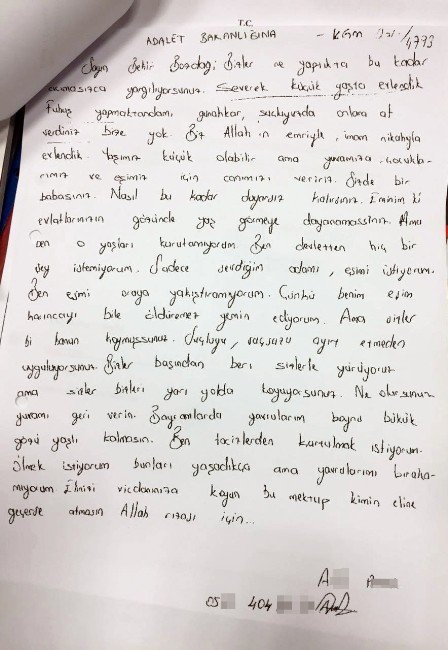 T.C.
ADALET BAKANLIĞINA - KGM 4773
Sayın Bekir Bozdağ; Bizler ne yaptıkta bu kadar
acımasızca yargılıyorsunuz. Severek küçük yaşta evlendik
Fuhuş yapmaktandamı, günahkar, suçluyuzda onlara af
verdiniz bize yok. Biz Allah'ın emriyle, imam nikahıyla
evlendik. Yaşımız küçük olabilir ama yuvamıza, çocukla-
rımız ve eşimiz için canımızı veririz. Sizde bir
babasınız. Nasıl bu kadar duyarsız kalırsınız. Eminim ki
evlatlarınızın gözünde yaş görmeye dayanamassınız. Ama
ben o yaşları kurutamıyorum. Ben devletten hiç bir
şey istemiyorum. Sadece sevdiğim adamı, eşimi istiyorum.
Ben eşimi oraya yakıştıramıyorum. Çünkü benim eşim
karıncayı bile öldüremez yemin ediyorum. Ama sizler
bi kanun koymuşsunuz. Suçluyu, suçsuzu ayırt etmeden
uyguluyorsunuz. Bizler başından beri sizlerle yürüyoruz
ama sizler bizleri yarı yolda koyuyorsunuz. Ne olursunuz
yuvamı geri verin. Bayramlarda yavrularım boynu bükük
gözü yaşlı kalmasın. Ben tacizlerden kurtulmak istiyorum.
Ölmek istiyorum bunları yaşadıkça ama yavrularımı bıraka-
mıyorum. Elinizi vicdanınıza koyun bu mektup kimin eline
geçerse atmasın Allah rızası için...
A
05 404